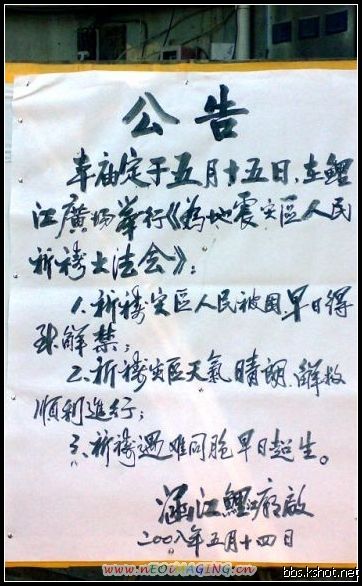 公告
本庙定于五月十五日，在鲤
江廣场举行《為地震灾區人民
祈祷大法会》：
1.祈祷灾區人民被困早日得
到解禁；
2.祈祷灾區天氣晴朗、解救
順利進行；
3、祈祷遇难同胞早日超生。
涵江鲤江廟啟
二00八年五月十四日
www.nEOiMAGiNG.cn
bbs.kshot.net